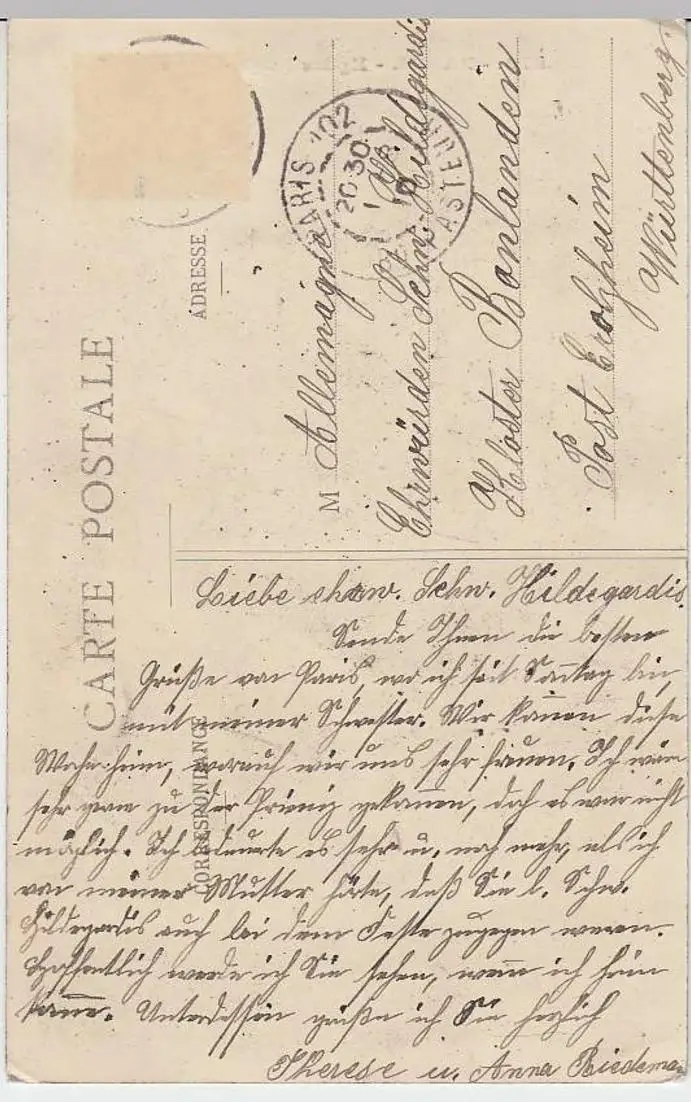 CARTE POSTALE
CORRESPONDANCE
ADRESSE
PARIS 102
20 30
M Allemagne
Ehrwürden Schw. Hildegardis
Kloster Bonlanden
Post Erolzheim
Württemberg.
Liebe ehrw. Schw. Hildegardis.
Sende Ihnen die besten
Grüße von Paris, wo ich seit Sonntag bin,
mit meiner Schwester. Wir kommen diese
Woche heim, worauf wir uns sehr freuen. Ich wäre
sehr gern zu der Primiz gekommen, doch es war nicht
möglich. Ich bedauerte es sehr u. noch mehr, als ich
von meiner Mutter hörte, daß Sie l. Schw.
Hildegardis auch bei dem Feste zugegen waren.
Hoffentlich werde ich Sie sehen, wenn ich heim
komme. Unterdessen grüße ich Sie herzlich
Therese u. Anna